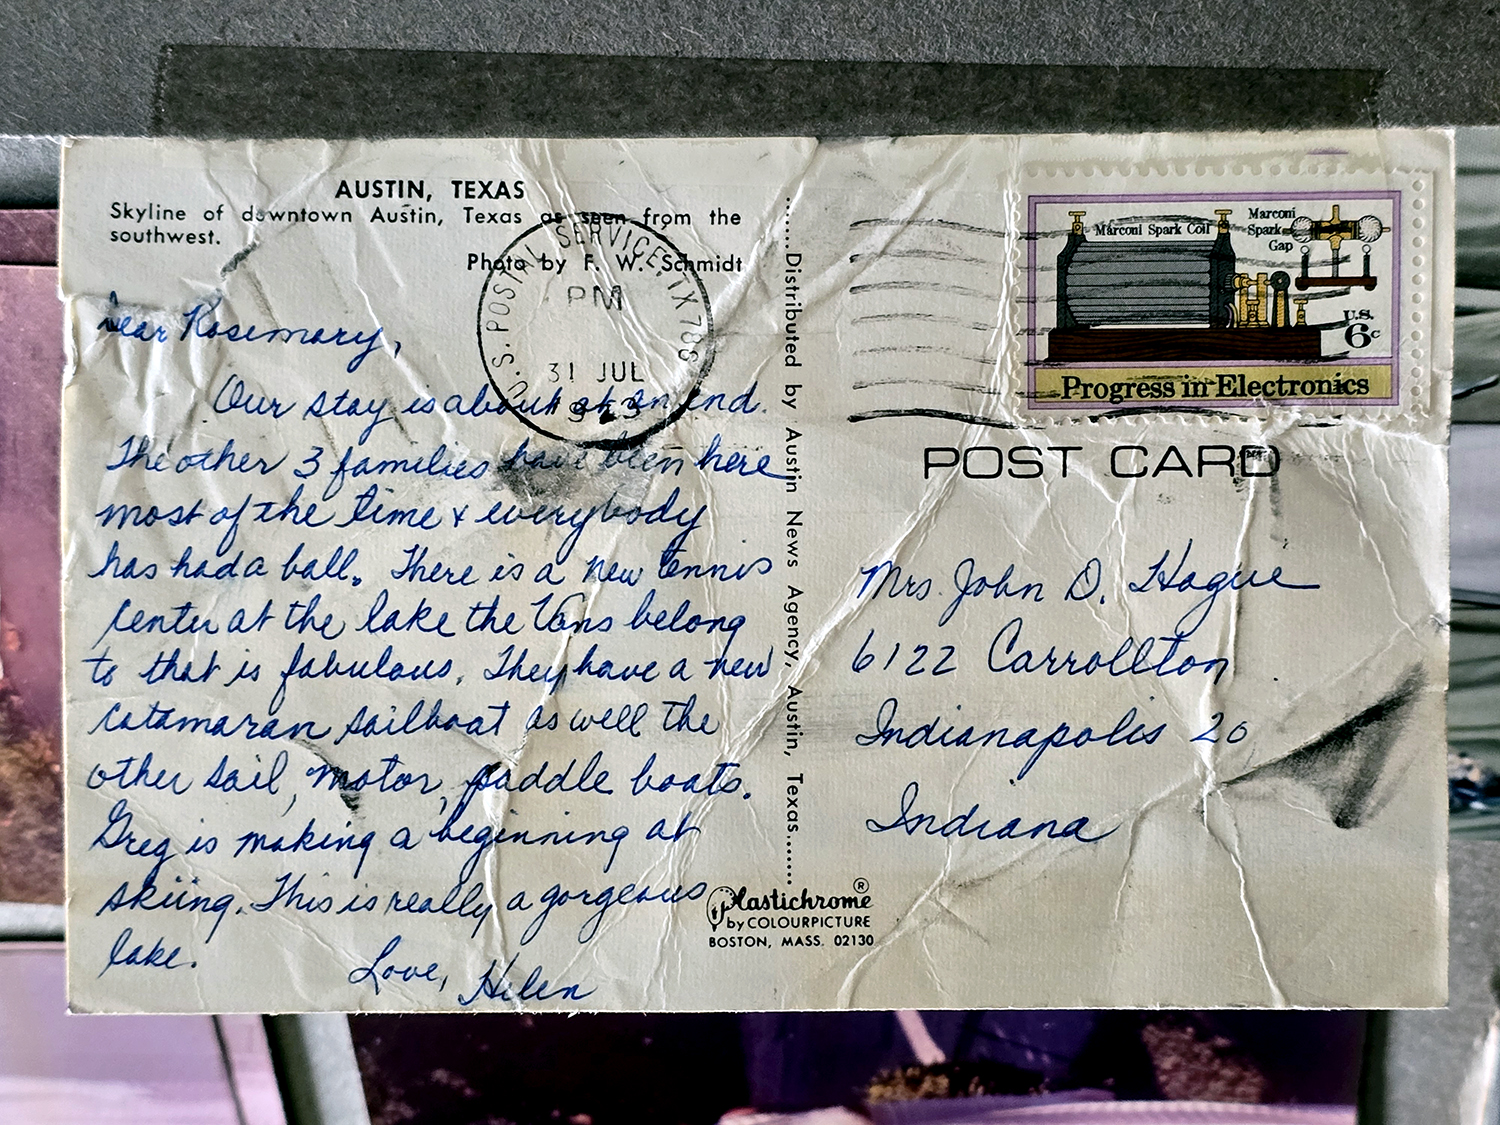 AUSTIN, TEXAS
Skyline of downtown Austin, Texas as seen from the
southwest.
Photo by F. W. Schmidt
U.S. POSTAL SERVICE TX 786
PM
31 JUL
1973
Dear Rosemary,
Our stay is about at an end.
The other 3 families have been here
most of the time & everybody
has had a ball. There is a new tennis
center at the lake the Vans belong
to that is fabulous. They have a new
catamaran sailboat as well the
other sail, motor, paddle boats.
Greg is making a beginning at
skiing. This is really a gorgeous
lake.
Love, Helen
.......Distributed by Austin News Agency, Austin, Texas.......
Plastichrome ®
by COLOURPICTURE
BOSTON, MASS. 02130
Marconi Spark Coil
Marconi
Spark
Gap
U.S.
6c
Progress in Electronics
POST CARD
Mrs. John D. Hague
6122 Carrollton
Indianapolis 20
Indiana